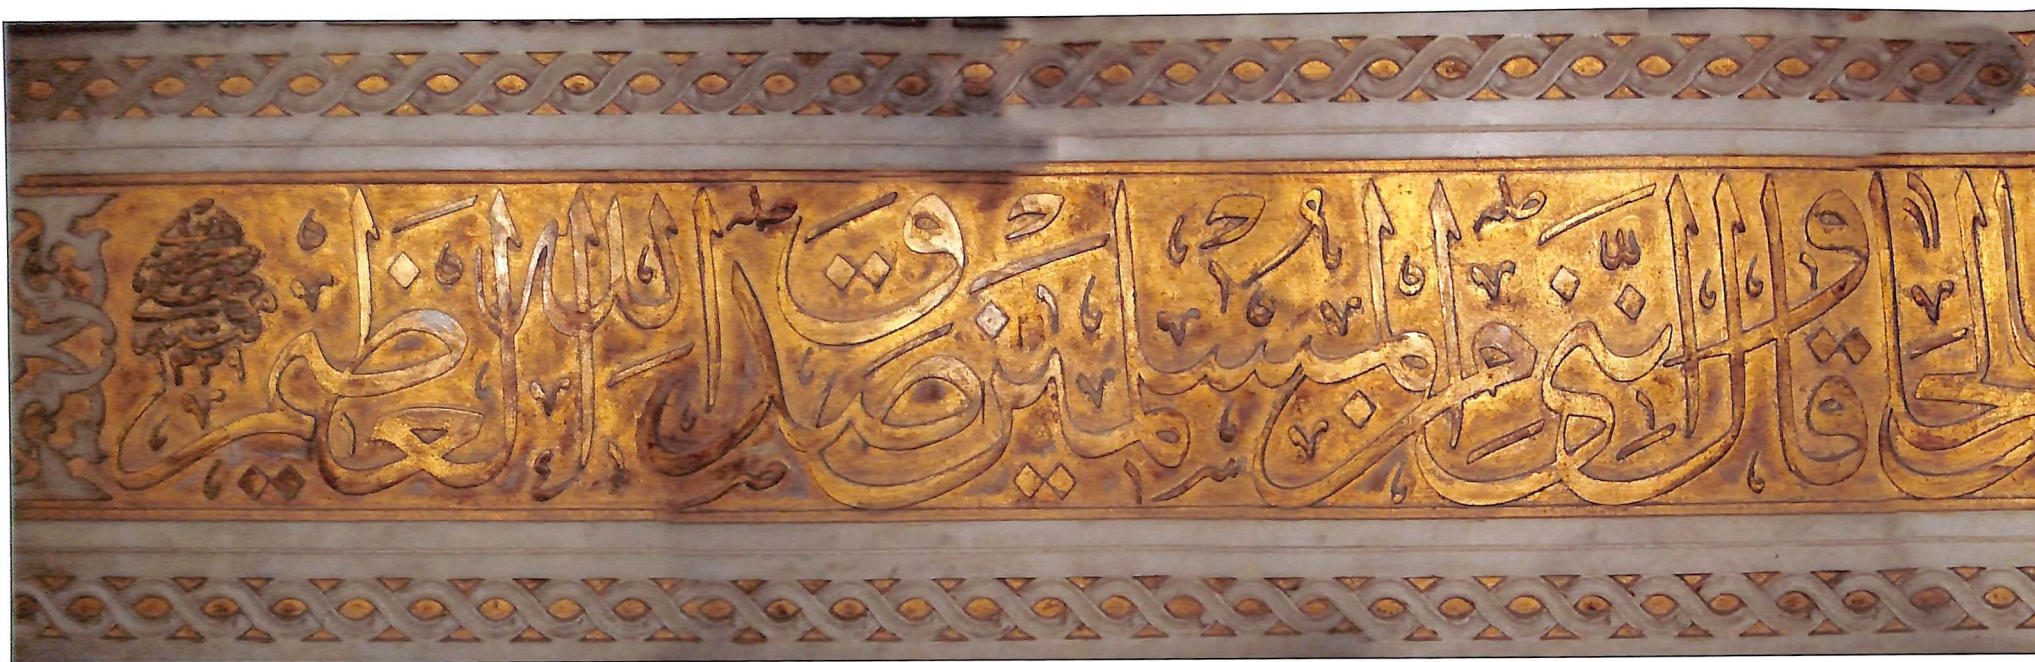 الحا وقال إنني من المسلمين صدق الله العظيم